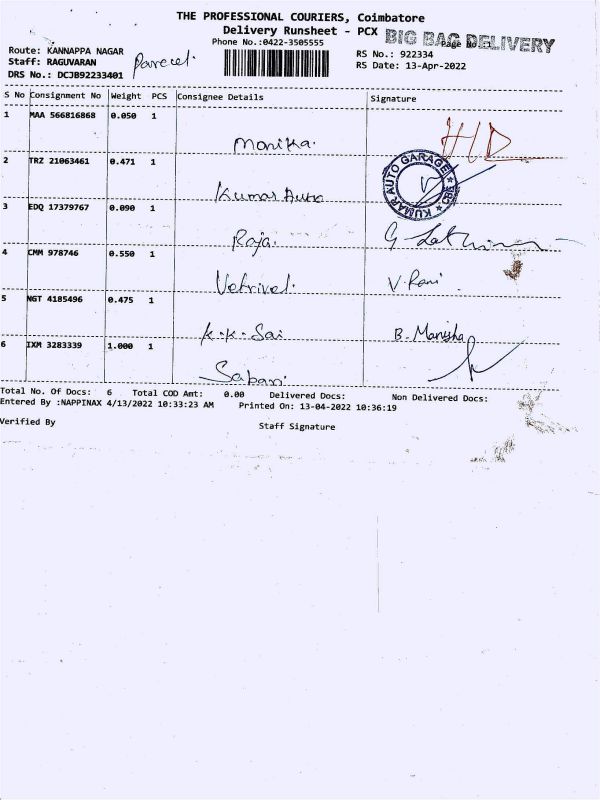 THE PROFESSIONAL COURIERS, Coimbatore
Delivery Runsheet - PCX
BIG BAG DELIVERY
Phone No.:0422-3505555
Page No
Route: KANNAPPA NAGAR
RS No.: 922334
Staff: RAGUVARAN
Parcel.
RS Date: 13-Apr-2022
DRS No.: DCJB92233401
S No Consignment No Weight PCS Consignee Details Signature
1 MAA 566816868 0.050 1
Monika. HD
2 TRZ 21063461 0.471 1
Kumar Auto KUMAR AUTO GARAGE ★ CBE ★
3 EDQ 17379767 0.090 1
Raja. G
4 CMM 978746 0.550 1
Vetrivel. V. Rani
5 NGT 4185496 0.475 1
K.K. Sai B. Manisha
6 IXM 3283339 1.000 1
Sabari
Total No. Of Docs: 6 Total COD Amt: 0.00 Delivered Docs: Non Delivered Docs:
Entered By :NAPPINAX 4/13/2022 10:33:23 AM Printed On: 13-04-2022 10:36:19
Verified By Staff Signature